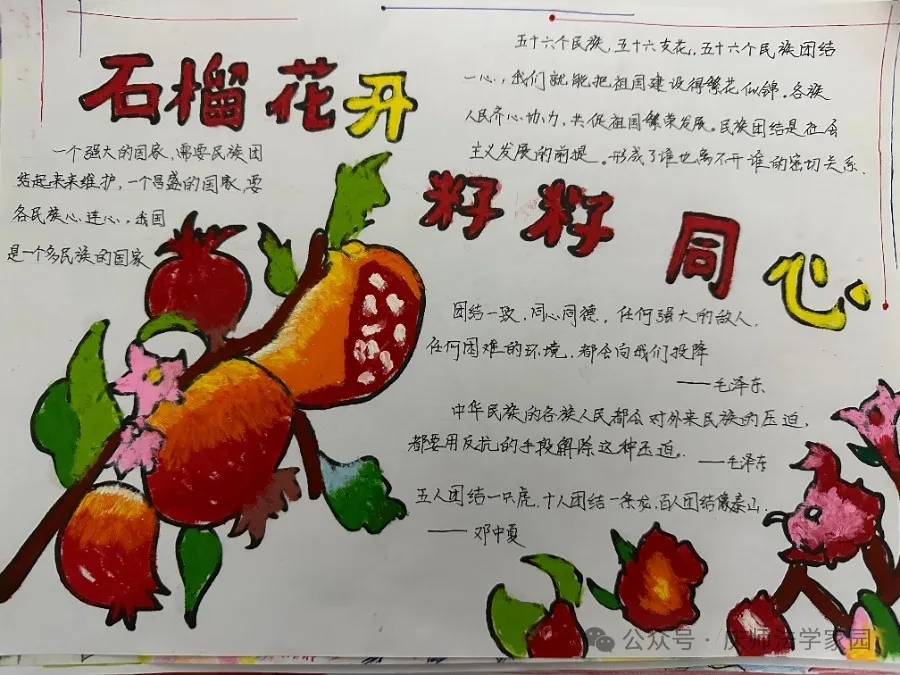 石榴花开
一个强大的国家，需要民族团
结起来来维护，一个昌盛的国家，要
各民族心连心，我国
是一个多民族的国家
五十六个民族，五十六支花，五十六个民族团结
一心，我们就能把祖国建设得繁花似锦。各族
人民齐心协力，共促祖国繁荣发展。民族团结是社会
主义发展的前提。形成了谁也离不开谁的密切关系.
籽籽同心
团结一致，同心同德，任何强大的敌人，
任何困难的环境，都会向我们投降
——毛泽东
中华民族的各族人民都会对外来民族的压迫，
都要用反抗的手段解除这种压迫。
——毛泽东
五人团结一只虎，十人团结一条龙，百人团结像泰山.
——邓中夏
公众号·庆师法学家园